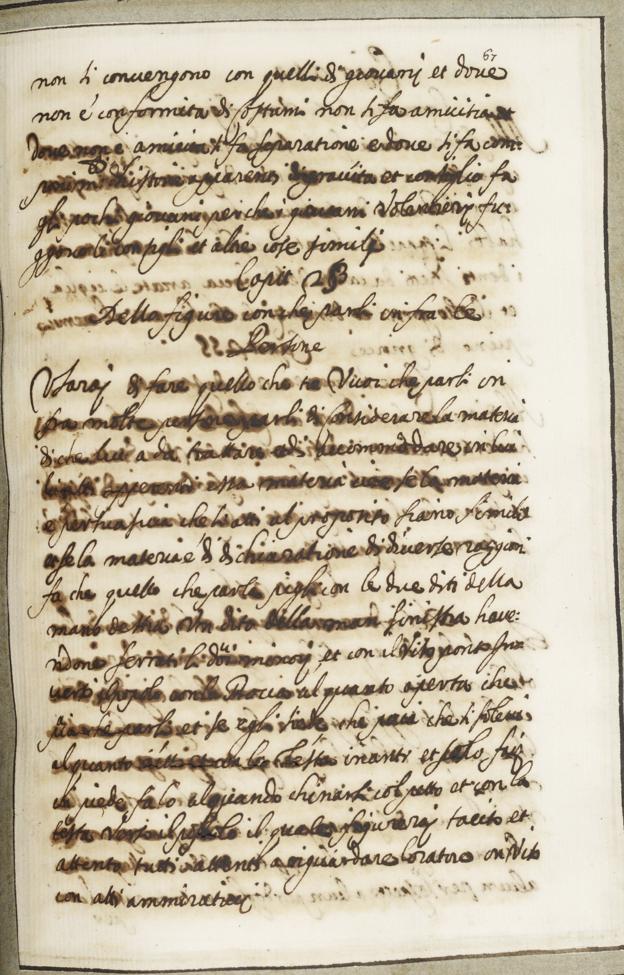 67
non si convengono con quelli di giovani et dove
non é conformita di costumi non si fa amicitia et
dove non è amicitia si fa separatione e dove si fa com:
apparenti di gravita et consiglio fa
gli pochi giovani perche i giovani volentieri fu:
ggono li consigli et altre cose simili
Capit
Della figura con che parli infra le
Persone
Userai di fare quello che tu vuoi che parli in
fra molte persone di considerare la materia
di che lui a da trattare et di accommodare in lui
li atti essa materia cioe se la materia
è persuasiva che li atti al proposito siano simili
et se la materia é di dichiaratione di diverse raggioni
fa che quello che parla pigli con le due diti della
mano destra un dito della man sinistra have:
ndone serrati li doi minori et con il viso pronto
verso il popolo con la bocca alquanto aperta che
che parli et se egli siede che paia che si sollevi
alquanto et con la testa inanti et se lo fai
in piede fa lo alquando chinarsi col petto et con la
testa verso il popolo il quale figurerai tacito et
attento tutti a riguardare loratore in viso
con atti ammirativi